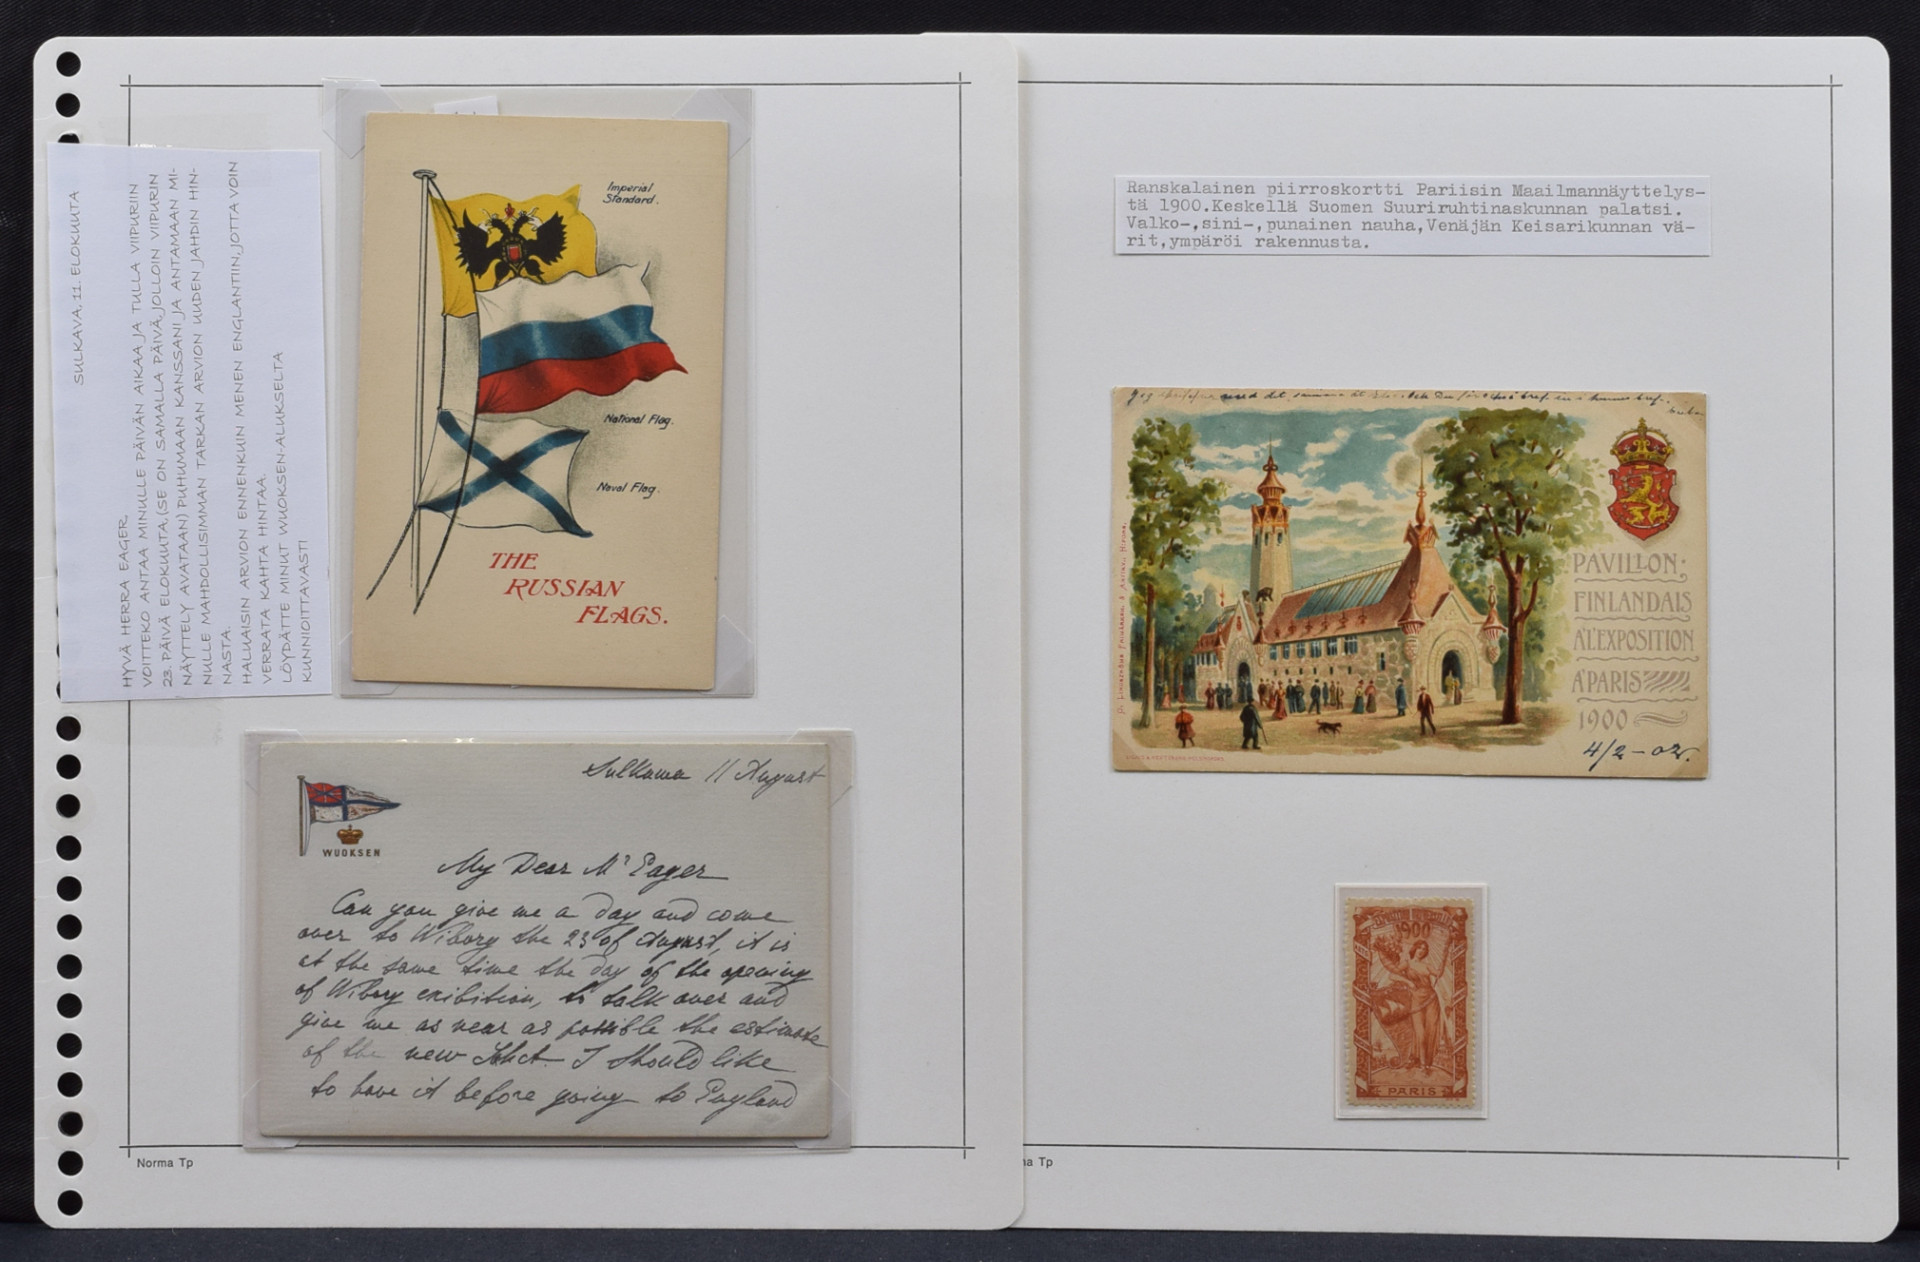 SULKAVA, 11. ELOKUUTA
HYVÄ HERRA EAGER,
VOITTEKO ANTAA MINULLE PÄIVÄN AIKAA JA TULLA VIIPURIIN
23. PÄIVÄ ELOKUUTA, (SE ON SAMALLA PÄIVÄ, JOLLOIN VIIPURIN
NÄYTTELY AVATAAN) PUHUMAAN KANSSANI JA ANTAMAAN MI-
NULLE MAHDOLLISIMMAN TARKAN ARVION UUDEN JAHDIN HIN-
NASTA.
HALUAISIN ARVION ENNENKUIN MENEN ENGLANTIIN, JOTTA VOIN
VERRATA KAHTA HINTAA.
LÖYDÄTTE MINUT WUOKSEN-ALUKSELTA
KUNNIOITTAVASTI
Imperial
Standard.
National Flag.
Naval Flag.
THE
RUSSIAN
FLAGS.
WUOKSEN
Sulkawa 11 August
My Dear Mr Eager
Can you give me a day and come
over to Wiborg the 23 of August, it is
at the same time the day of the opening
of Wiborg exibition, to talk over and
give me as near as possible the estimate
of the new Jakt. I should like
to have it before going to England
Norma Tp
Ranskalainen piirroskortti Pariisin Maailmannäyttelys-
tä 1900.Keskellä Suomen Suuriruhtinaskunnan palatsi.
Valko-,sini-,punainen nauha,Venäjän Keisarikunnan vä-
rit,ympäröi rakennusta.
PAVILLON
FINLANDAIS
A L'EXPOSITION
A PARIS
1900
4/2-02.
1900
PARIS
ma Tp